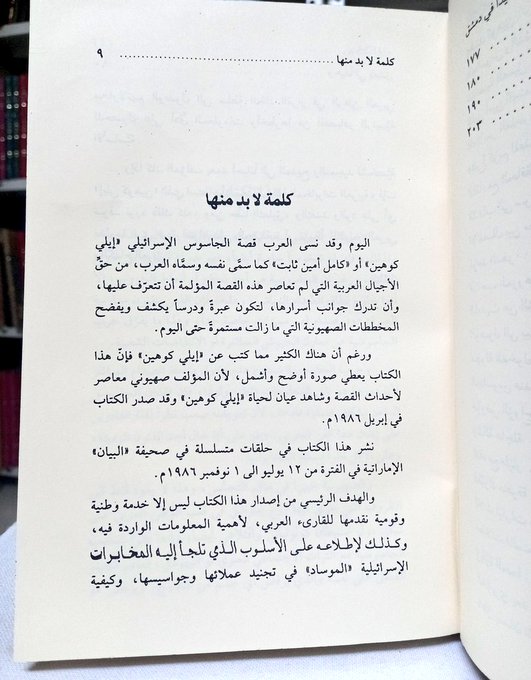 كلمة لا بد منها ........................................ ٩
كلمة لا بد منها
اليوم وقد نسى العرب قصة الجاسوس الإسرائيلي «إيلي
كوهين» أو «كامل أمين ثابت» كما سمَّى نفسه وسمَّاه العرب، من حقِّ
الأجيال العربية التي لم تعاصر هذه القصة المؤلمة أن تتعرّف عليها،
وأن تدرك جوانب أسرارها، لتكون عبرةً ودرساً يكشف ويفضح
المخططات الصهيونية التي ما زالت مستمرةً حتى اليوم.
ورغم أن هناك الكثير مما كتب عن «إيلي كوهين» فإنّ هذا
الكتاب يعطي صورة أوضح وأشمل، لأن المؤلف صهيوني معاصر
لأحداث القصة وشاهد عيان لحياة «إيلي كوهين» وقد صدر الكتاب
في إبريل ١٩٨٦م.
نشر هذا الكتاب في حلقات متسلسلة في صحيفة «البيان»
الإماراتية في الفترة من ١٢ يوليو الى ١ نوفمبر ١٩٨٦م.
والهدف الرئيسي من إصدار هذا الكتاب ليس إلا خدمة وطنية
وقومية نقدمها للقارىء العربي، لأهمية المعلومات الواردة فيه،
وكذلك لإطلاعه على الأسلوب الذي تلجأ إليه المخابرات
الإسرائيلية «الموساد» في تجنيد عملائها وجواسيسها، وكيفية
في دمشق
١٧٧
١٨٠
١٩٠
٢٠٣